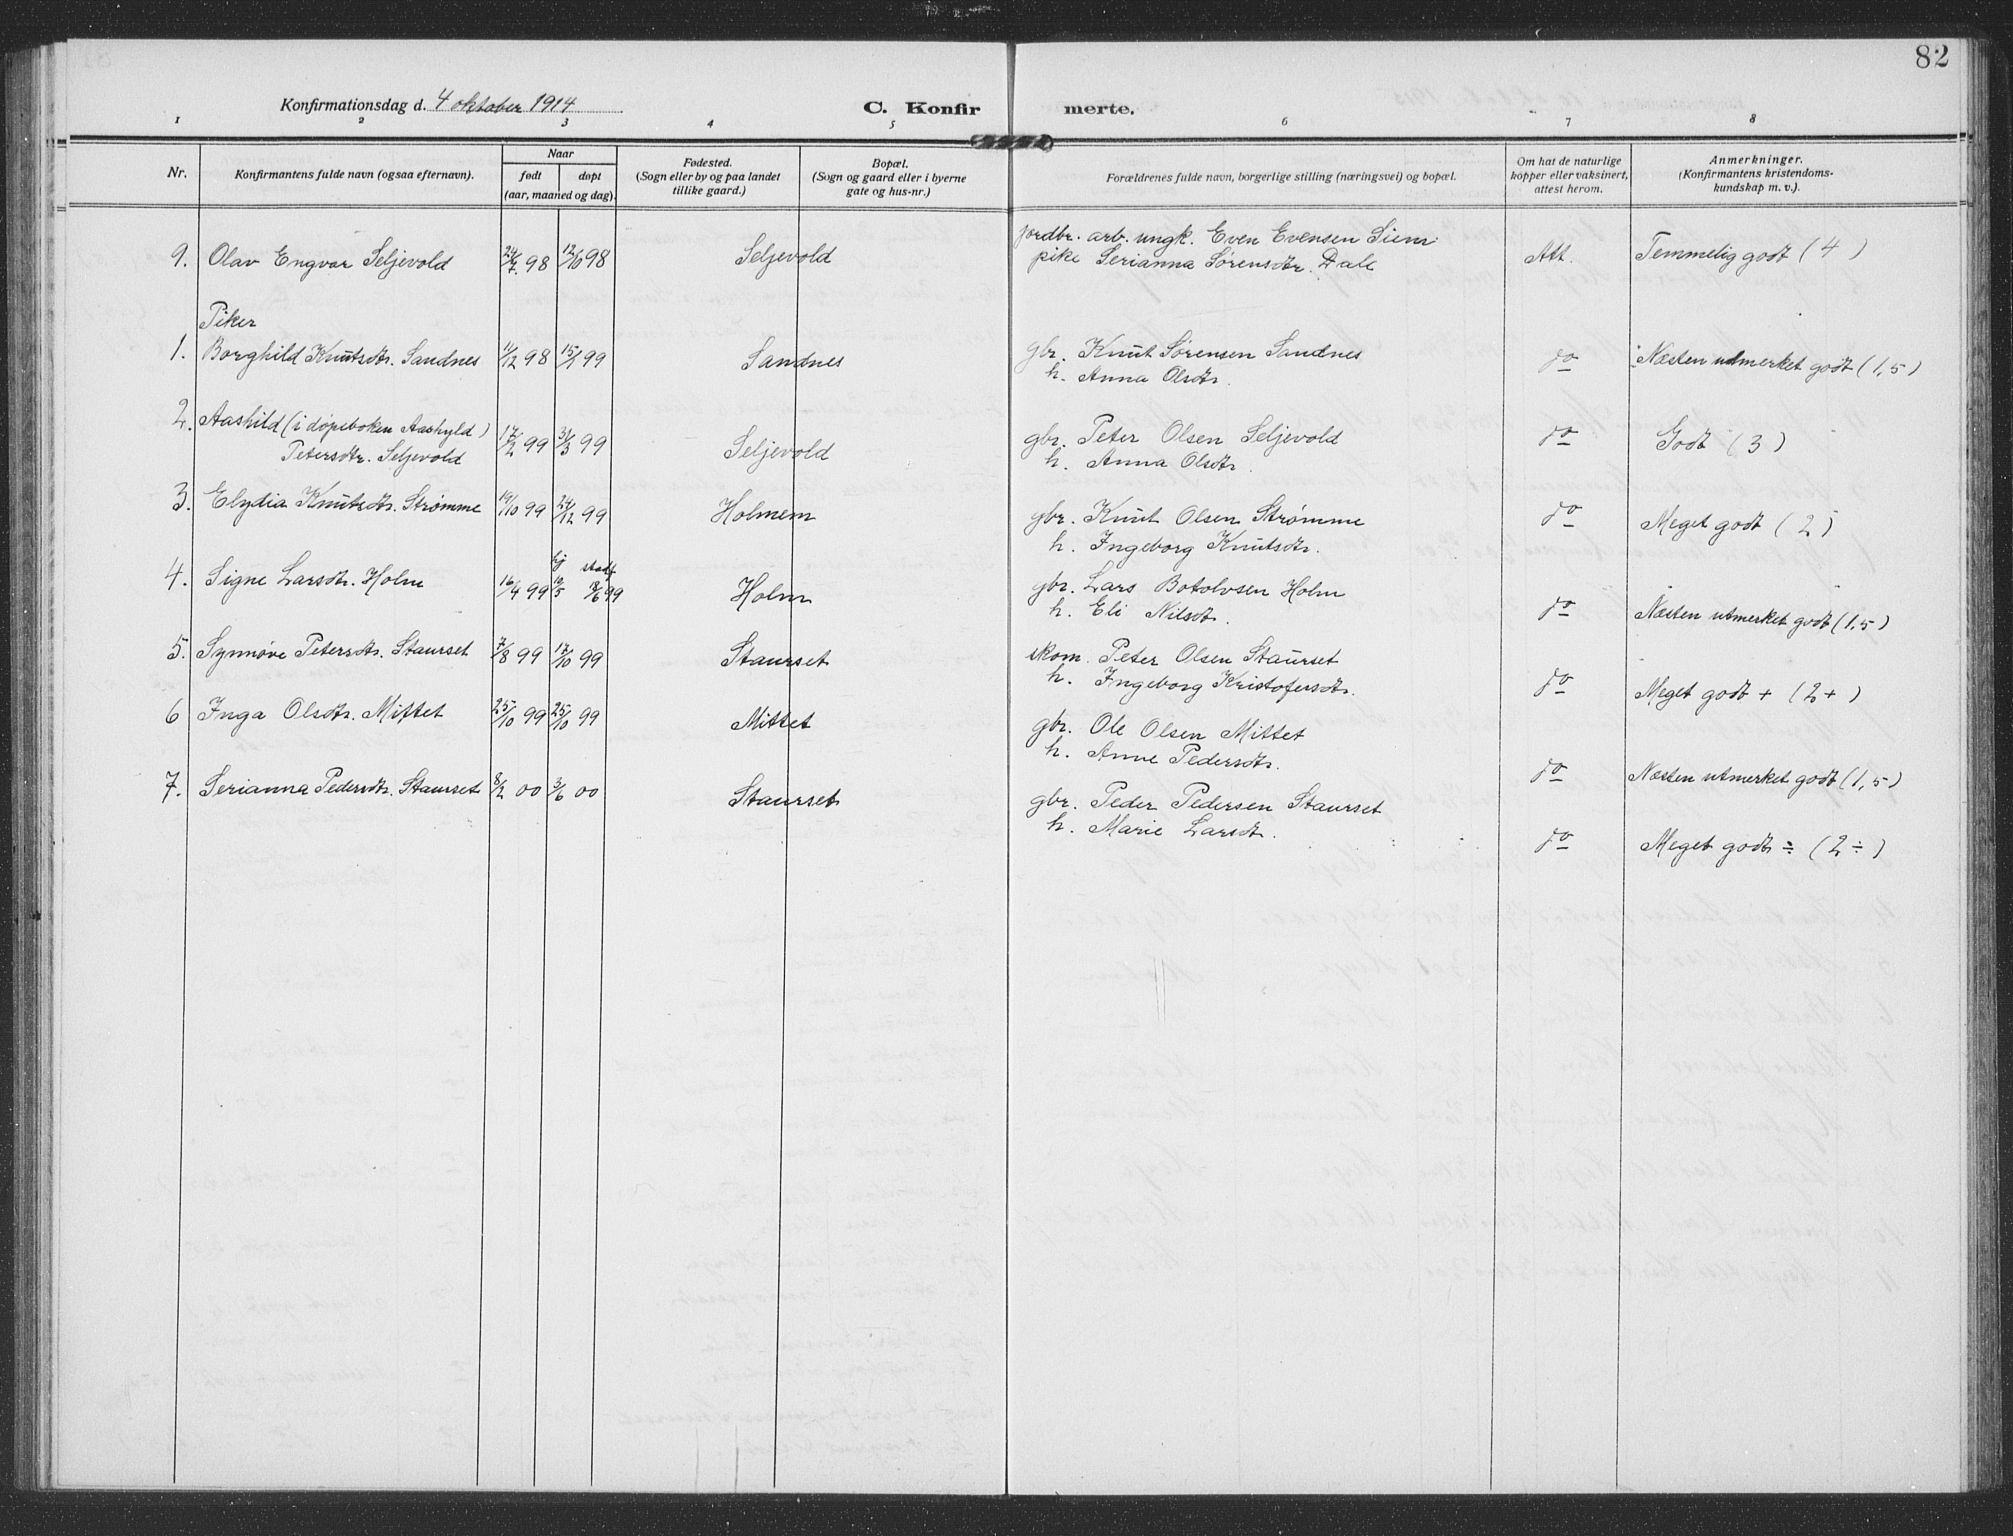 82
Konfirmationsdag d. 4 oktober 1914
C. Konfir merte.
1 2 3 4 5 6 7 8
Nr.
Konfirmantens fulde navn (ogsaa efternavn).
Naar
født døpt
(aar, maaned og dag).
Fødested.
(Sogn eller by og paa landet
tillike gaard.)
Bopæl.
(Sogn og gaard eller i byerne
gate og hus-nr.)
Forældrenes fulde navn, borgerlige stilling (næringsvei) og bopæl.
Om hat de naturlige
kopper eller vaksinert,
attest herom.
Anmerkninger.
(Konfirmantens kristendoms-
kundskap m. v.).
9. Olav Engvar Seljevold 24/7 98 12/10 98 Seljevold
jordbr. arb. ungk. Even Evensen Siem
pike Serianna Sørensdtr. Dale
Att. Temmelig godt (4)
Piker
1. Borghild Knutsdtr. Sandnes 11/12 98 15/1 99 Sandnes
gbr. Knut Sørensen Sandnes
h. Anna Olsdtr.
do Næsten utmerket godt (1,5)
2. Aashild (i døpeboken Aashyld)
Petersdtr. Seljevold 17/2 99 31/3 99 Seljevold
gbr. Peter Olsen Seljevold
h. Anna Olsdtr.
do Godt (3)
3. Elydia Knutsdtr. Strømme 19/10 99 24/12 99 Holmem
gbr. Knut Olsen Strømme
h. Ingeborg Knutsdtr.
do Meget godt (2)
4. Signe Larsdtr. Holm 16/4 99 Holm
gbr. Lars Botolvsen Holm
h. Eli Nilsdtr.
do Næsten utmerket godt (1,5)
5. Synnøve Petersdtr. Staurset 7/8 99 17/10 99 Staurset
skom. Peter Olsen Staurset
h. Ingeborg Kristofersdtr.
do Meget godt + (2+)
6 Inga Olsdtr. Mittet 25/10 99 25/10 99 Mittet
gbr. Ole Olsen Mittet
h. Anne Pedersdtr.
do Næsten utmerket godt (1,5)
7. Serianna Pedersdtr. Staurset 8/2 00 3/6 00 Staurset
gbr. Peder Pedersen Staurset
h. Marie Larsdtr.
do Meget godt ÷ (2÷)